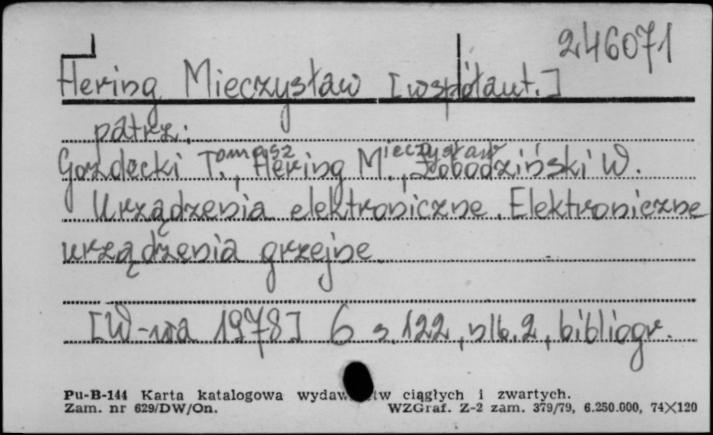 246071
Hering Mieczysław [współaut.]
patrz:
Gozdecki Tomasz, Hering Mieczysław, Łobodziński W.
Urządzenia elektroniczne. Elektroniczne
urządzenia grzejne.
[W-wa 1978] 6 s. 122, nlb. 2, bibliogr.
Pu-B-144 Karta katalogowa wydaw tw ciągłych i zwartych.
Zam. nr 629/DW/On. WZGraf. Z-2 zam. 379/79, 6.250.000, 74×120